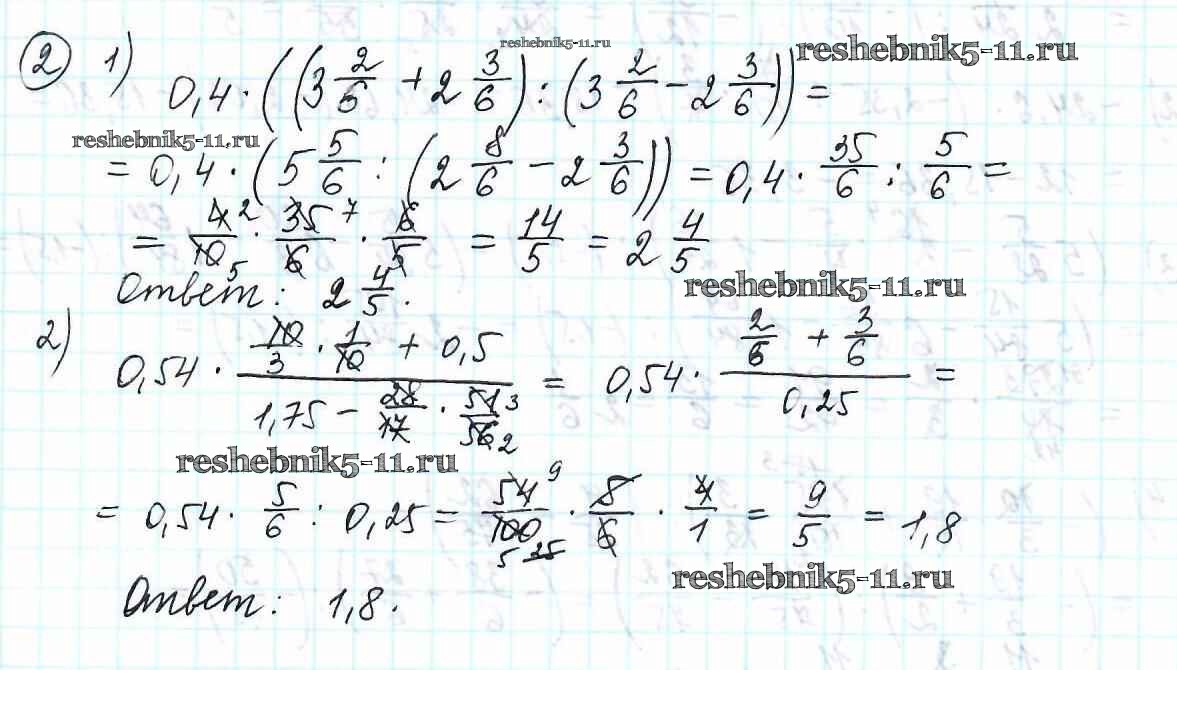 reshebnik5-11.ru
reshebnik5-11.ru
2 1) 0,4 · ((3 2/6 + 2 3/6) : (3 2/6 − 2 3/6)) =
reshebnik5-11.ru
= 0,4 · (5 5/6 : (2 8/6 − 2 3/6)) = 0,4 · 35/6 : 5/6 =
= 4 2/10 5 · 35 7/6 · 6/5 = 14/5 = 2 4/5
Ответ: 2 4/5.
reshebnik5-11.ru
2) 0,54 · (10/3 · 1/10 + 0,5)/(1,75 − 28/17 · 51 3/56 2) = 0,54 · (2/6 + 3/6)/0,25 =
reshebnik5-11.ru
= 0,54 · 5/6 : 0,25 = 54 9/100 25 5 · 5/6 · 4/1 = 9/5 = 1,8
reshebnik5-11.ru
Ответ: 1,8.